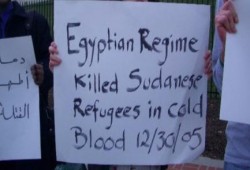 Egyptian Regime
Killed Sudanese
Refugees in cold
Blood 12/30/05